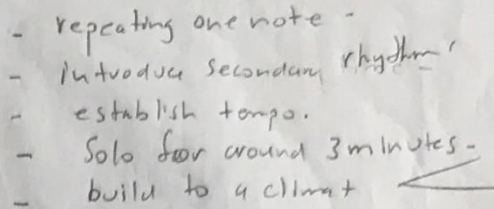 - repeating one note -
- introduce secondary rhythm'
- establish tempo.
- Solo for around 3 minutes -
- build to a climat